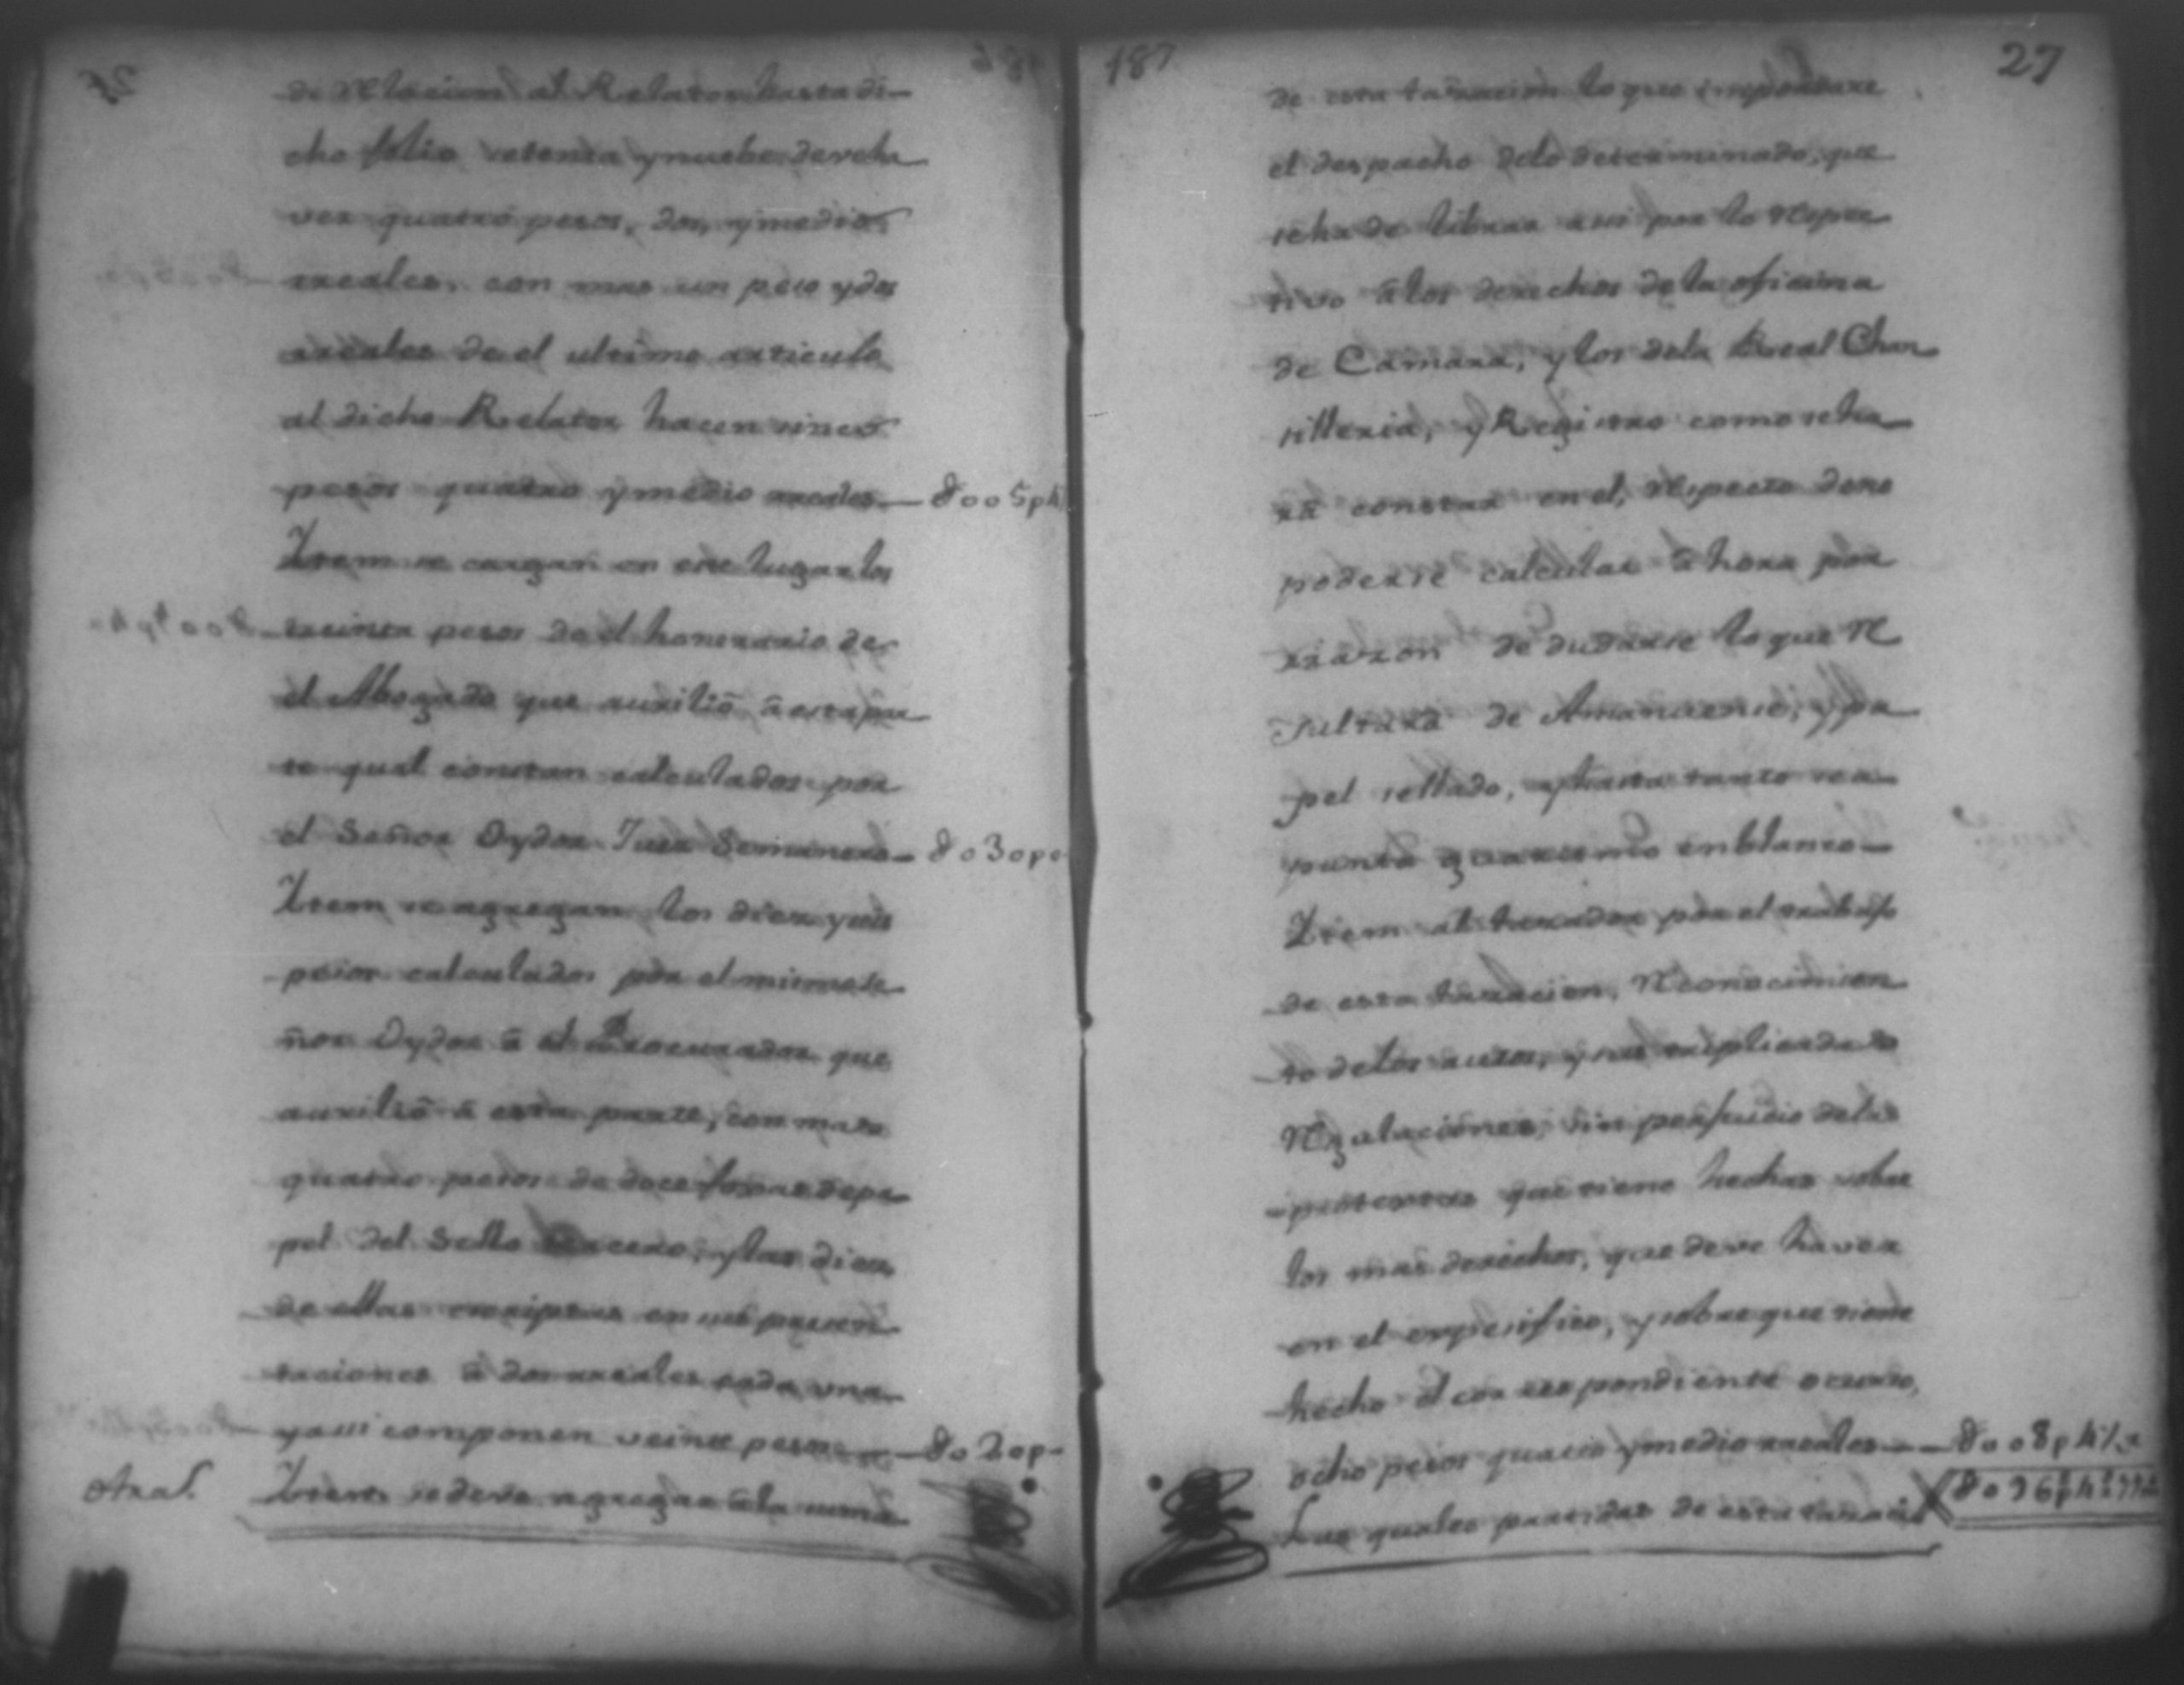 de Relacion al Relator hasta di-
cho folio setenta y nuebe devela
ver quatro pesos, dos, y medio
rreales, con mas un peso y dos
rreales de el ultimo articulo
al dicho Relator hacen sinco
pesos quatro y medio rreales — 8005p4
Ytem se cargan en este lugar los
treinta pesos de el honorario de
el Abogado que auxilió â esta par
te qual constan calculados por
el Señor Oydor Juez Semanero — 8030p
Ytem se agregan los diez y seis
pesos calculados por el mismo Se
ñor Oydor â el Procurador que
auxilió â esta parte, con mas
quatro pesos de doce foxas de pa
pel del Sello tercero, y las diez
de ellas escriptas en sus presen
taciones â dos rreales cada una
y assi componen veinte pesos — 8020p
Ytem se deve agregar âla suma
187
27
de esta tasacion lo que importare
el despacho delo determinado, que
se ha de librar assi por lo respec
tivo âlos derechos de la oficina
de Camara, y los dela Rreal Chan
silleria, y Registro como seha
rá constar en el, respecto deno
poderse calcular âhora por
rrazon de dudarse lo que re
sultará de Amanuense, y pa
pel sellado, y hasta tanto sea
punta guarismo enblanco —
Ytem al tasador por el trabajo
de esta tasacion, reconocimien
to delos autos, y sus
regulaciones, sin perjuicio delas
protestas que tiene hechas sobre
los mas derechos, que deve haver
en el expecifico, y sobre que tiene
hecho el correspondiente ocurso,
ocho pesos quatro y medio rreales — 8008p4½r
Las quales partidas de esta tasacio